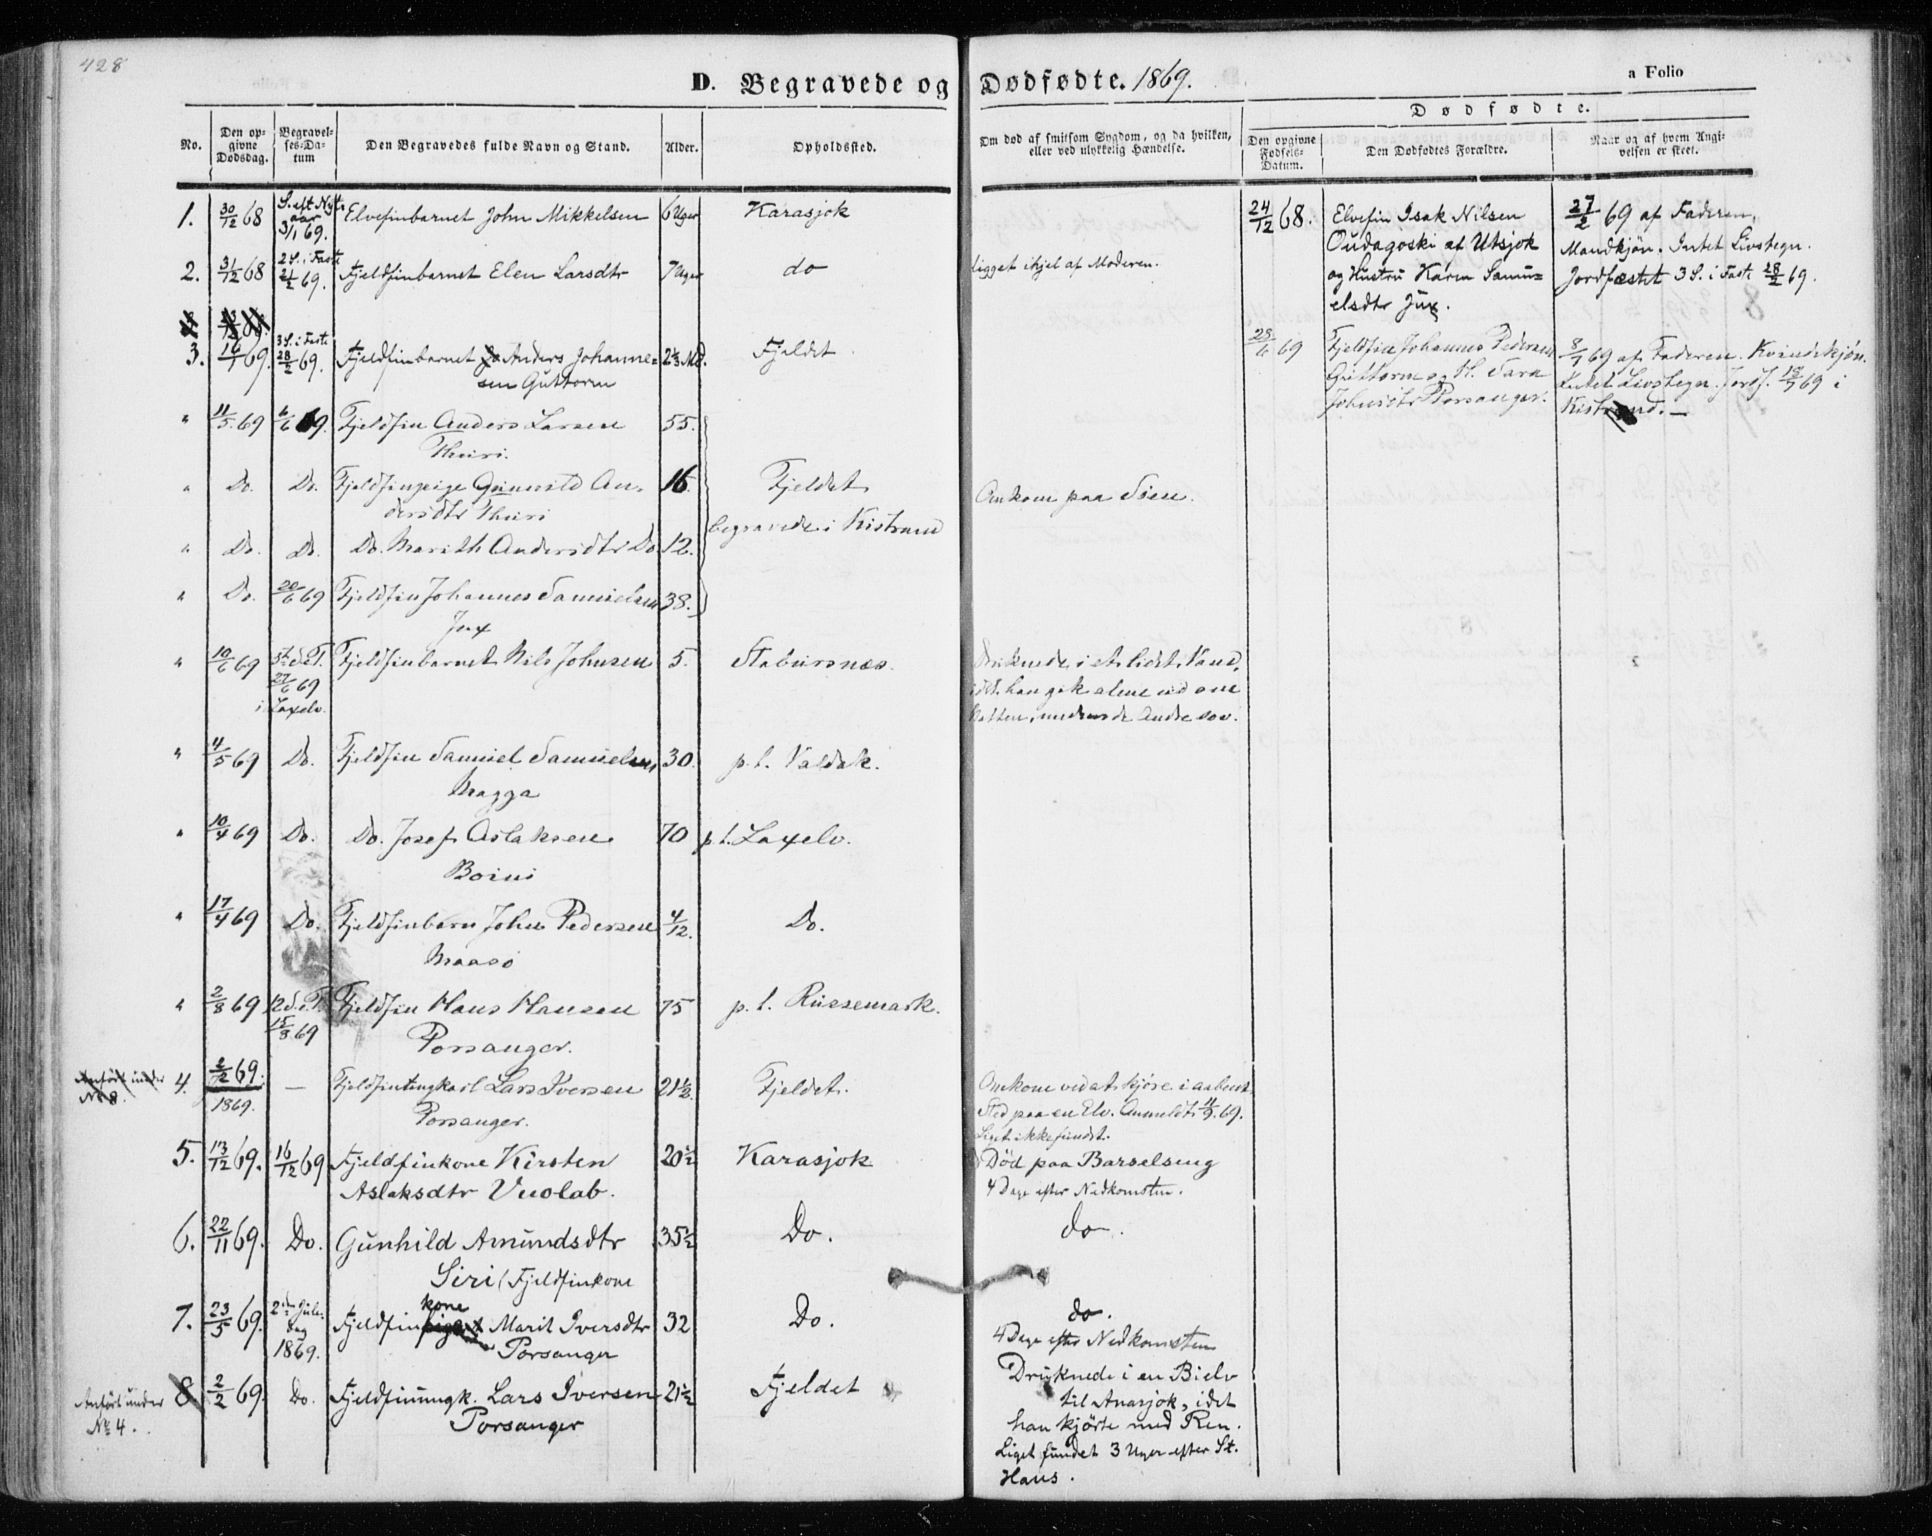 428
D. Begravede og Dødfødte. 1869.
a Folio
Dødfødte.
No.
Den op-
givne
Dødsdag.
Begravel-
ses-Da-
tum
Den Begravedes fulde Navn og Stand.
Alder.
Opholdssted.
Om død af smitsom Sygdom, og da hvilken,
eller ved ulykkelig Hændelse.
Den opgivne
Fødsels-
Datum.
Den Dødfødtes Forældre.
Naar og af hvem Angi-
velsen er skeet.
1. 30/12 68 S. eft Nyt-
aar
3/1 69. Elvefinbarnet John Mikkelsen 6 Uger Karasjok
2. 31/12 68 2 S. i Fast.
21/2 69. Fjeldfinbarnet Elen Larsdtr 7 Uger do ligget ihjel af Moderen.
3. 16/1 69. 3 S. i Faste
28/2 69. Fjeldfinbarnet Anders Johanne=
sen Guttorm 2 1/3 Md. Fjeldet
" 11/5 69 6/6 69. Fjeldfin Anders Larsen
Thuri. 55.
" Do. Do. Fjeldfinpige Gunnild An-
dersdtr Thuri 16 Fjeldet
begravede i Kistrand Omkom paa Søen.
" Do. Do. Do. Marith Andersdtr Do. 12.
" Do. 20/6 69 Fjeldfin Johannes Samuelsen
Jux 38.
" 10/6 69 5te S. e. T.
27/6 69
i Laxelv. Fjeldfinbarnet Nils Johnsen 5. Stabursnæs. Druknede i et lidet Vand,
idet han gik alene ud om
Natten, medens de Andre sov.
" 4/5 69 Do. Fjeldfin Samuel Samuelsen
Magga 30. p. t. Valdak.
" 10/4 69 Do. Do. Josef Aslaksen
Boini 70 p. t. Laxelv.
" 17/4 69 Do. Fjeldfinbarn John Pedersen
Maasø 4/12. Do.
" 2/8 69 12 S. e. T.
15/8 69 Fjeldfin Hans Hansen
Porsanger. 75 p. t. Russemark.
Anført under
No 8. 4. 2/2 69.
1869. — Fjeldfinungkarl Lars Iversen
Porsanger. 21 1/2 Fjeldet. Omkom ved at kjøre i aabent
Sted paa en Elv. Anmeldt 4/9. 69.
Liget ikke fundet.
5. 13/12 69. 16/12 69 Fjeldfinkone Kirsten
Aslaksdtr Vuolab. 20 1/2 Karasjok Død paa Barselseng
4 Dage efter Nedkomsten.
6. 22/11 69. Do. Gunhild Amundsdtr
Siri (Fjeldfinkone 35 1/2 Do. do.
7. 23/5 69. 2den Jule-
dag
1869. Fjeldfinkone Marit Iversdtr
Porsanger 32 Do. do.
4 Dage efter Nedkomsten
Anført under
No 4. 8 2/2 69. Do. Fjeldfinungk. Lars Iversen
Porsanger 21 1/2 Fjeldet Druknede i en Bielv
til Anasjok, idet
han kjørte med Ren.
Liget fundet 3 Uger efter St.
Hans.
24/12 68. Elvefin Isak Nilsen
Oudagoski af Utsjok
og Hustru Karen Samu=
elsdtr Jux. 27/2 69 af Faderen,
Mandkjøn. Intet Livstegn.
Jordfæstet 3 S. i Fast. 28/2 69.
28/6 69 Fjeldfin Johannes Pedersen
Guttorm og H. Sara
Johnsdtr Porsanger. 8/7 69 af Faderen. Kvindekjøn.
Intet Livstegn. Jordf. 18/7 69 i
Kistrand. —